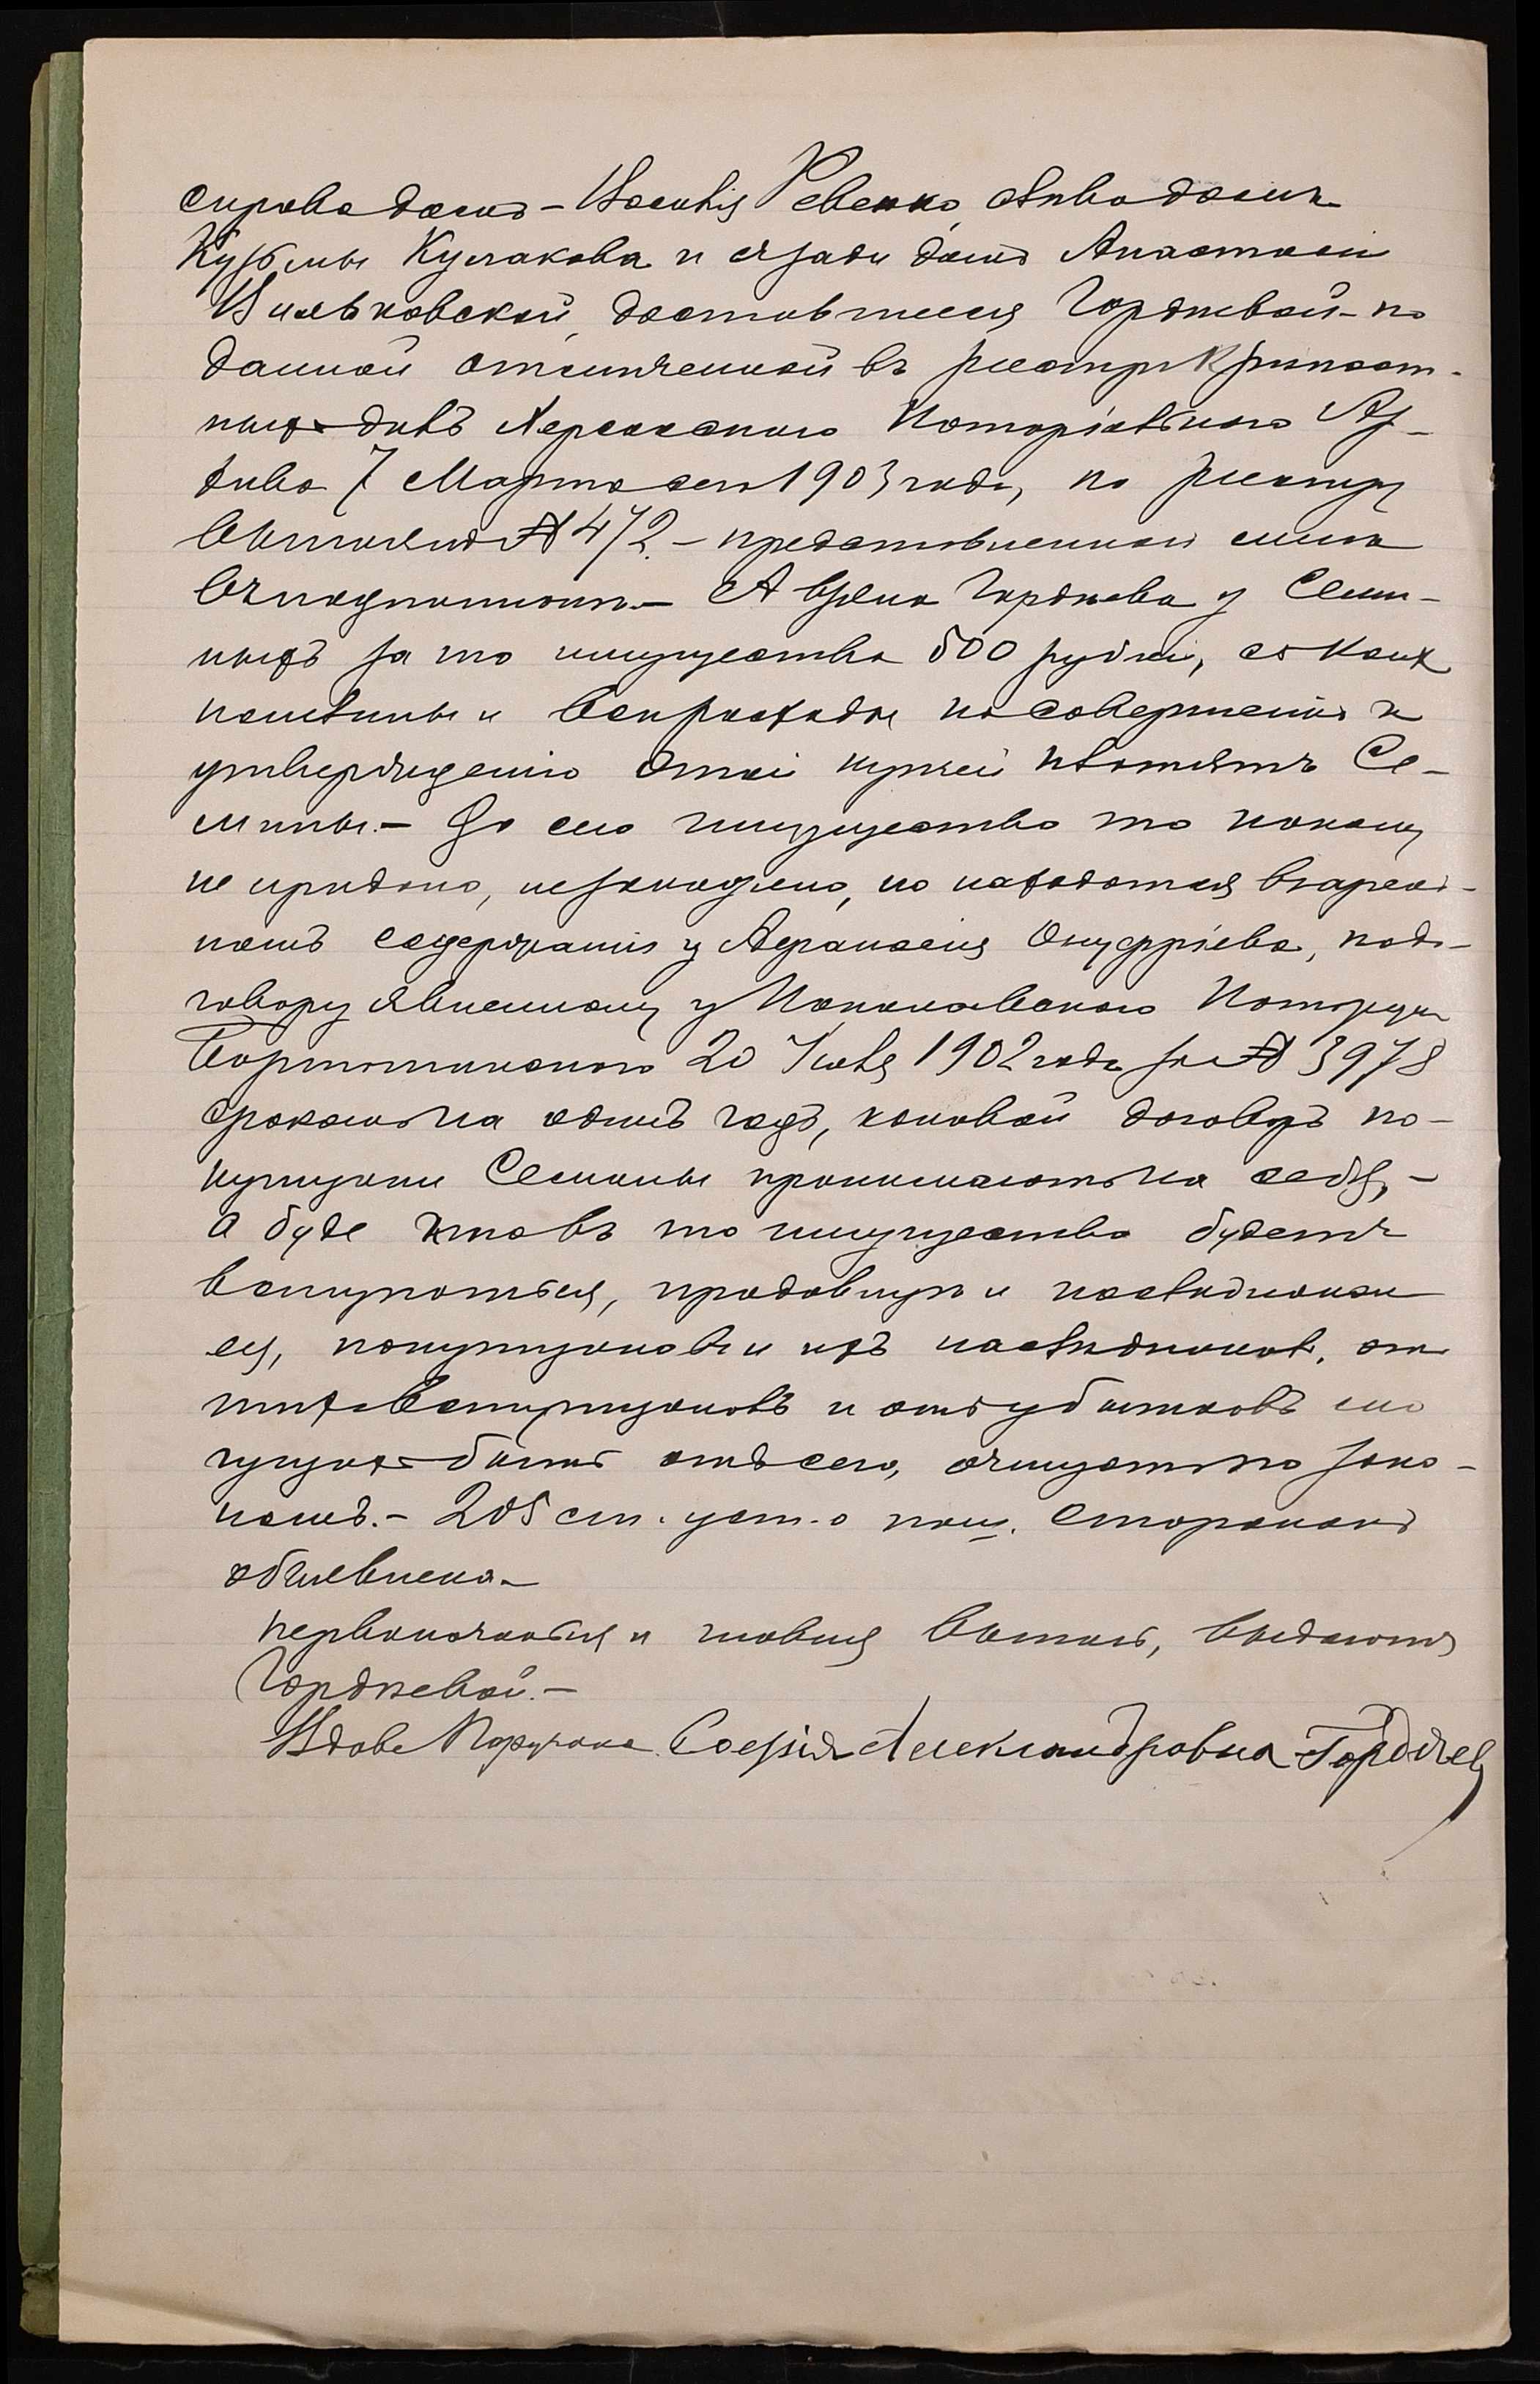 справа домъ - Василія Ревенко, слѣва домъ
Кузьмы Кулакова и сзади домъ Анастасіи
Вильковской, доставшееся Гордѣевой - по
данной отмѣченной въ реестрѣ крѣпост-
ныхъ дѣлъ Херсонскаго Нотаріальнаго Ар-
хива 7 Марта сего 1903 года, по реестру
№ 472. - представленной мнѣ
въ подлинникѣ. - А взяла Гордѣева у Семи-
ныхъ за то имущество 500 рублей, съ коихъ
пошлины и всѣ расходы по совершенію и
утвержденію этой купчей платятъ Се-
мины. - До сего имущество то никому
не продано, не заложено, но находится въ аренд-
номъ содержаніи у Афанасія Онуфріева, по до-
говору явленному у Николаевскаго Нотаріуса
20 Іюля 1902 года за № 3978
срокомъ на одинъ годъ, каковой договоръ по-
купщики Семины принимаютъ на себя, -
а буде кто въ то имущество будетъ
вступаться, продавщицѣ и наслѣдникамъ
ея, покупщиковъ и ихъ наслѣдниковъ, отъ
тѣхъ вступщиковъ и отъ убытковъ мо
гущихъ быть отъ сего, очищать по зако-
намъ. - 205 ст. уст. о пош. сторонамъ
объявлена. -
выпись, выдается
Гордѣевой. -
Вдова Поручика Софія Александровна Гордѣева